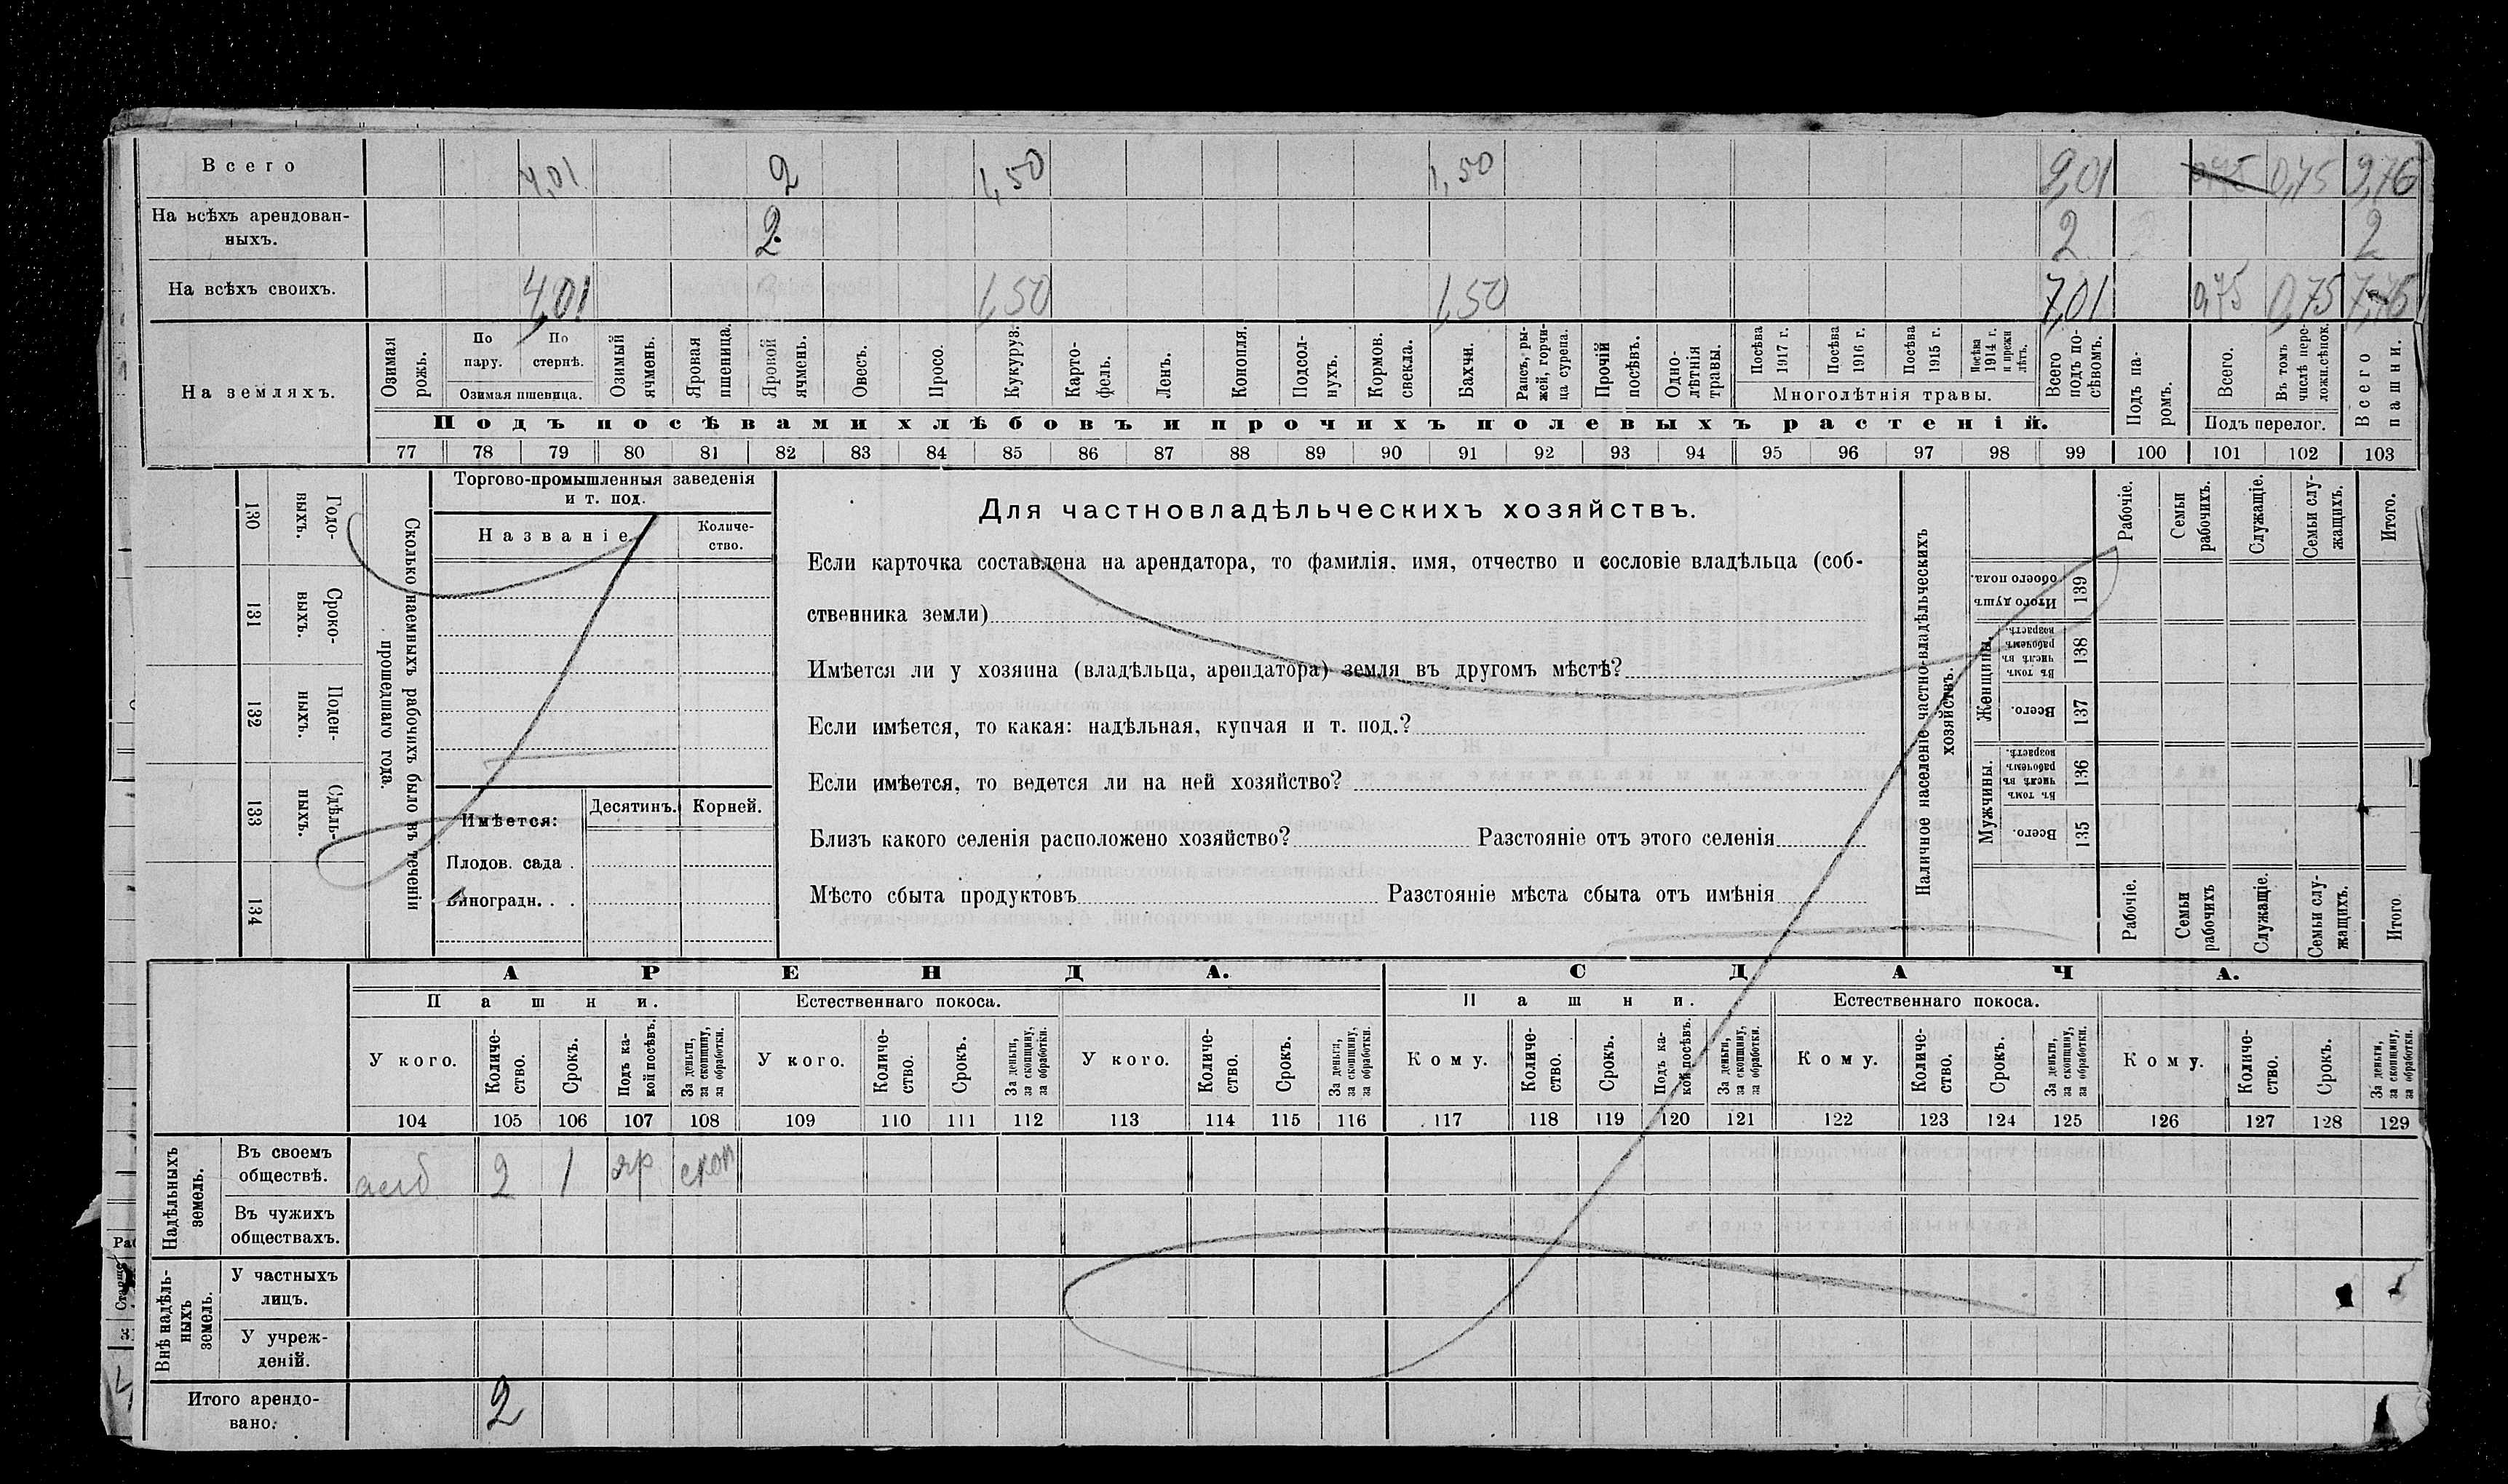 Всего 4,01 2 1,50 1,50 9,01 0,75 0,75 9,76
На всѣхъ арендован-
ныхъ. 2 2 2
На всѣхъ своихъ. 4,01 1,50 1,50 7,01 0,75 0,75
На земляхъ.
Озимая рожь.
По пару.
По стернѣ.
Озимая пшеница.
Озимый ячмень.
Яровая пшеница.
Яровой ячмень.
Овесъ.
Просо.
Кукуруз.
Карто-
фель.
Ленъ.
Конопля.
Подсол-
нухъ.
Кормов. свекла.
Бахчи.
Рапсъ, ры-
жей, горчи-
ца сурепа.
Прочій посѣвъ.
Одно-
лѣтнія травы.
Посѣва 1917 г.
Посѣва 1916 г.
Посѣва 1915 г.
Посѣва 1914 г. и прежн лѣтъ.
Многолѣтнія травы.
Всего подъ по-
сѣвомъ.
Подъ па-
ромъ.
Всего.
Въ томъ числѣ перелож.сѣнок.
Подъ перелог.
Всего пашни.
Подъ посѣвами хлѣбовъ и прочихъ полевыхъ растеній.
77 78 79 80 81 82 83 84 85 86 87 88 89 90 91 92 93 94 95 96 97 98 99 100 101 102 103
130 Годо-
выхъ.
131 Сроко-
выхъ.
132 Поден-
ныхъ.
133 Сдѣль-
ныхъ.
134
Сколько наемныхъ рабочихъ было въ теченіи
прошедшаго года.
Торгово-промышленныя заведенія
и т. под.
Названіе
Количе-
ство.
Имѣется:
Десятинъ. Корней.
Плодов. сада .
Виноградн. . .
Для частновладѣльческихъ хозяйствъ.
Если карточка составлена на арендатора, то фамилія, имя, отчество и сословіе владѣльца (соб-
ственника земли)
Имѣется ли у хозяина (владѣльца, арендатора) земля въ другомъ мѣстѣ?
Если имѣется, то какая: надѣльная, купчая и т. под.?
Если имѣется, то ведется ли на ней хозяйство?
Близъ какого селенія расположено хозяйство? Разстояніе отъ этого селенія
Мѣсто сбыта продуктовъ Разстояніе мѣста сбыта отъ имѣнія
Наличное населеніе частно-владѣльческихъ
хозяйствъ.
Рабочіе.
Семьи рабочихъ.
Служащіе.
Семьи слу-
жащихъ.
Итого.
Итого душъ обоего пола. 139
Женщины.
Въ томъ числѣ въ рабочемъ возрастѣ. 138
Всего. 137
Мужчины.
Въ томъ числѣ въ рабочемъ возрастѣ. 136
Всего. 135
Рабочіе.
Семьи рабочихъ
Служащіе.
Семьи слу-
жащихъ.
Итого
АРЕНДА. СДАЧА.
Пашни. Естественнаго покоса. Пашни. Естественнаго покоса.
У кого.
Количе-
ство.
Срокъ.
Подъ ка-
кой посѣвъ.
За деньги, за скопщину, за обработки.
У кого.
Количе-
ство.
Срокъ.
За деньги, за скопщину, за обработки.
У кого.
Количе-
ство.
Срокъ.
За деньги, за скопщину, за обработки.
Кому.
Количе-
ство.
Срокъ.
Подъ ка-
кой посѣвъ.
За деньги, за скопщину, за обработки.
Кому.
Количе-
ство.
Срокъ.
За деньги, за скопщину, за обработки.
Кому.
Количе-
ство.
Срокъ.
За деньги, за скопщину, за обработки.
104 105 106 107 108 109 110 111 112 113 114 115 116 117 118 119 120 121 122 123 124 125 126 127 128 129
Надѣльныхъ земель.
Въ своемъ
обществѣ. 2 1 яр скоп
Въ чужихъ
обществахъ.
Внѣ надѣль-
ныхъ земель.
У частныхъ
лицъ.
У учреж-
деній.
Итого арендо-
вано. 2